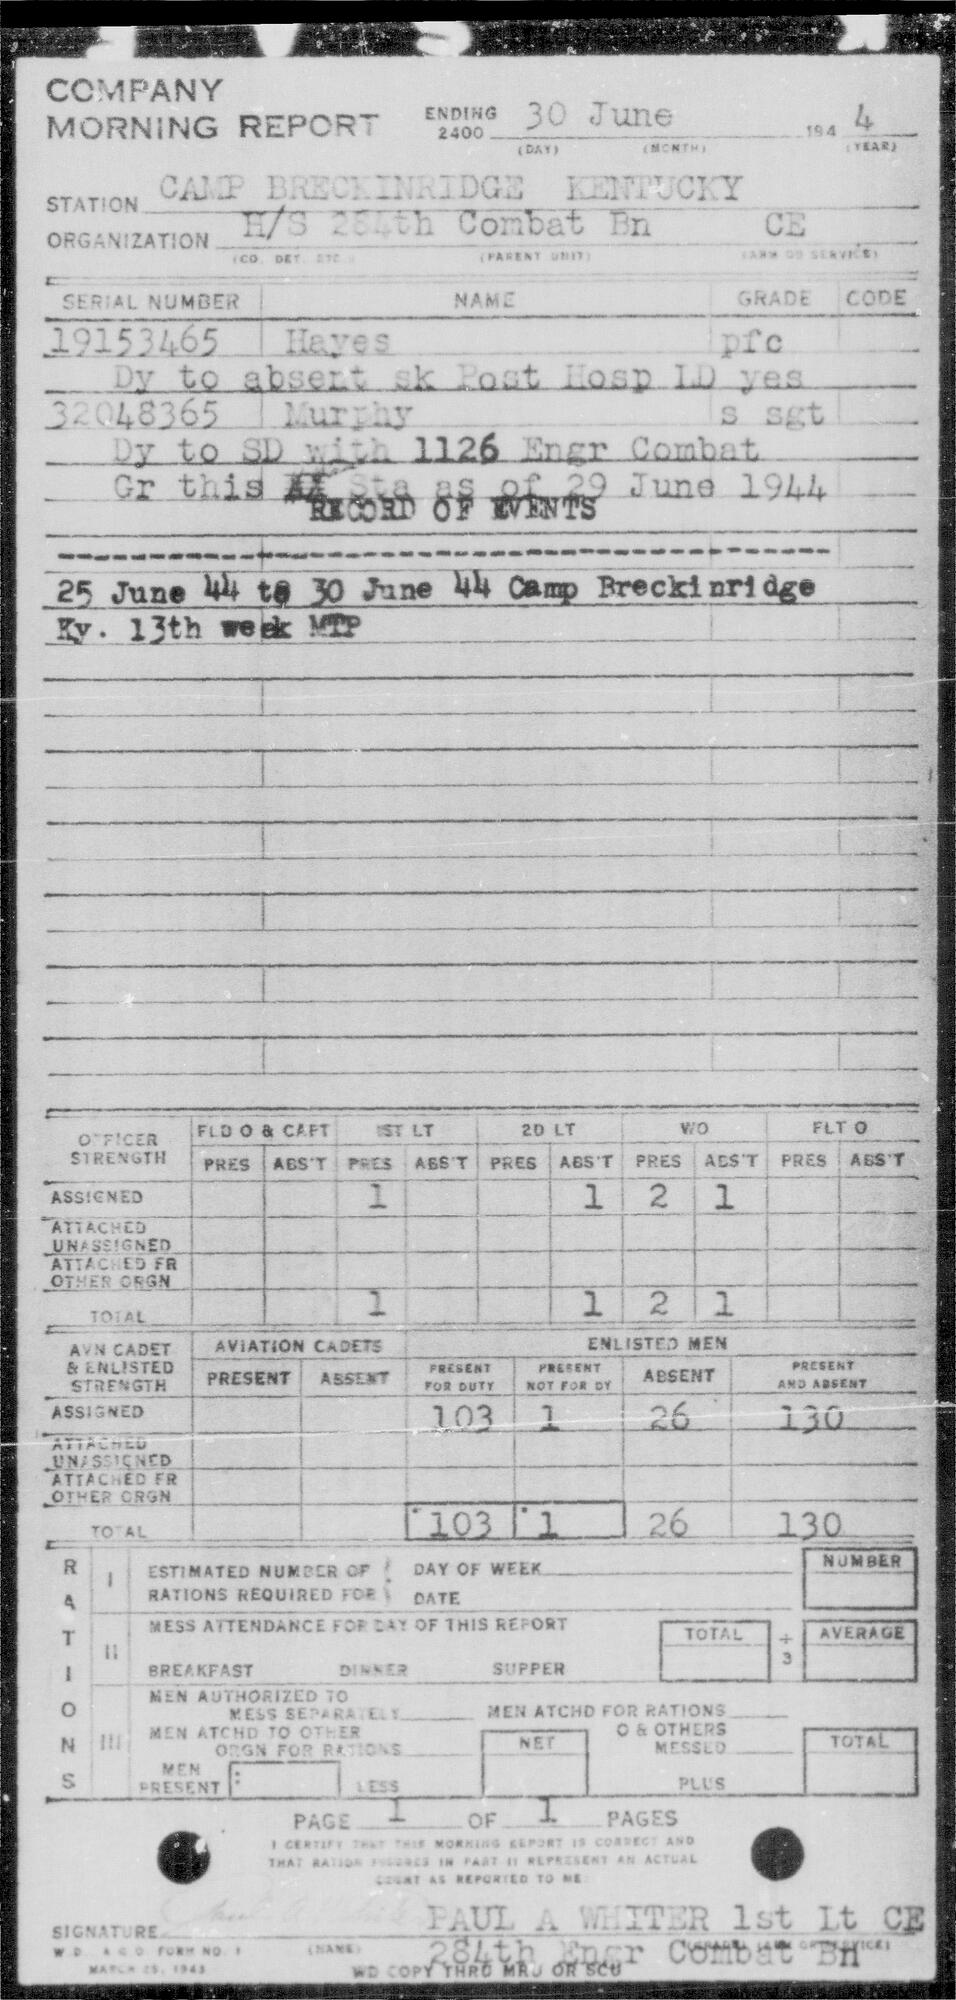 COMPANY
MORNING REPORT
ENDING 2400 30 June 194 4
(DAY) (MONTH) (YEAR)
STATION CAMP BRECKINRIDGE KENTUCKY
ORGANIZATION H/S 284th Combat Bn CE
(CO. DET. ETC.) (PARENT UNIT) (ARM OR SERVICE)
SERIAL NUMBER NAME GRADE CODE
19153465 Hayes pfc
Dy to absent sk Post Hosp LD yes
32048365 Murphy s sgt
Dy to SD with 1126 Engr Combat
Gr this Sta as of 29 June 1944
RECORD OF EVENTS
-----------------------------------------
25 June 44 to 30 June 44 Camp Breckinridge
Ky. 13th week MTP
OFFICER STRENGTH FLD O & CAPT 1ST LT 2D LT WO FLT O
PRES ABS'T PRES ABS'T PRES ABS'T PRES ABS'T PRES ABS'T
ASSIGNED 1 1 2 1
ATTACHED
UNASSIGNED
ATTACHED FR
OTHER ORGN
TOTAL 1 1 2 1
AVN CADET & ENLISTED STRENGTH AVIATION CADETS ENLISTED MEN
PRESENT ABSENT PRESENT FOR DUTY PRESENT NOT FOR DY ABSENT PRESENT AND ABSENT
ASSIGNED 103 1 26 130
ATTACHED
UNASSIGNED
ATTACHED FR
OTHER ORGN
TOTAL 103 1 26 130
RATIONS
I ESTIMATED NUMBER OF DAY OF WEEK NUMBER
RATIONS REQUIRED FOR DATE
II MESS ATTENDANCE FOR DAY OF THIS REPORT TOTAL ÷ 3 AVERAGE
BREAKFAST DINNER SUPPER
III MEN AUTHORIZED TO
MESS SEPARATELY MEN ATCHD FOR RATIONS
MEN ATCHD TO OTHER
ORGN FOR RATIONS NET O & OTHERS MESSED TOTAL
MEN PRESENT LESS PLUS
PAGE 1 OF 1 PAGES
I CERTIFY THAT THIS MORNING REPORT IS CORRECT AND
THAT RATION FIGURES IN PART II REPRESENT AN ACTUAL
COUNT AS REPORTED TO ME
SIGNATURE PAUL A WHITER 1st Lt CE
W D A G O FORM NO. 1 (NAME) 284th Engr Combat Bn
MARCH 25, 1943 WD COPY THRU MRU OR SCU